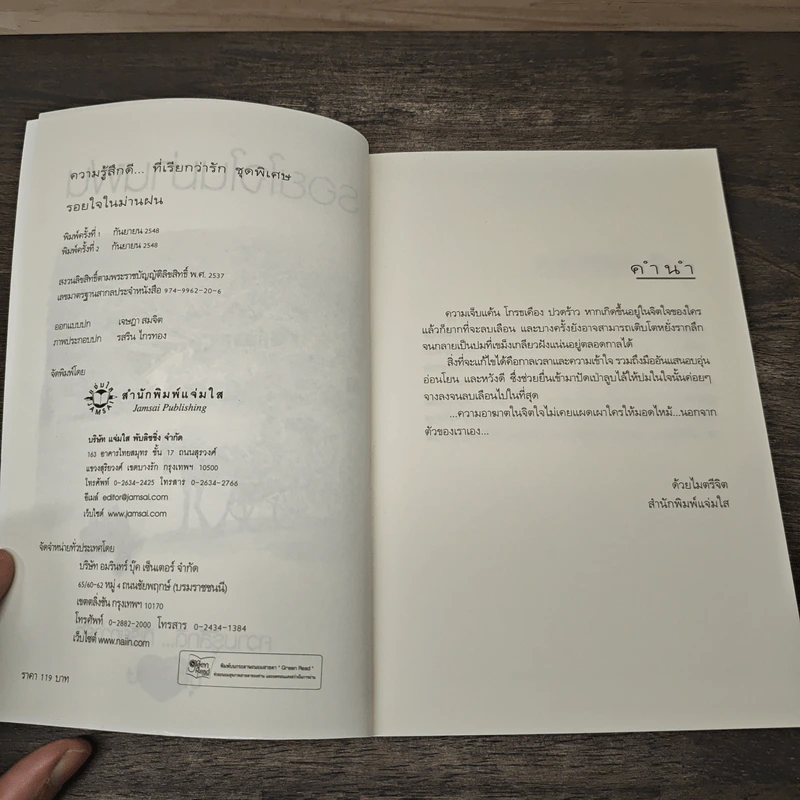 ความรู้สึกดี... ที่เรียกว่ารัก ชุดพิเศษ
รอยใจในม่านฝน
พิมพ์ครั้งที่ 1 กันยายน 2548
พิมพ์ครั้งที่ 2 กันยายน 2548
สงวนลิขสิทธิ์ตามพระราชบัญญัติลิขสิทธิ์ พ.ศ. 2537
เลขมาตรฐานสากลประจำหนังสือ 974-9962-20-6
ออกแบบปก เจษฎา สมจิต
ภาพประกอบปก รสริน ไกรทอง
จัดพิมพ์โดย
แจ่มใส
JAMSAI
สำนักพิมพ์แจ่มใส
Jamsai Publishing
บริษัท แจ่มใส พับลิชชิ่ง จำกัด
163 อาคารไทยสมุทร ชั้น 17 ถนนสุรวงศ์
แขวงสุริยวงศ์ เขตบางรัก กรุงเทพฯ 10500
โทรศัพท์ 0-2634-2425 โทรสาร 0-2634-2766
อีเมล์ editor@jamsai.com
เว็บไซต์ www.jamsai.com
จัดจำหน่ายทั่วประเทศโดย
บริษัท อมรินทร์ บุ๊ค เซ็นเตอร์ จำกัด
65/60-62 หมู่ 4 ถนนชัยพฤกษ์ (บรมราชชนนี)
เขตตลิ่งชัน กรุงเทพฯ 10170
โทรศัพท์ 0-2882-2000 โทรสาร 0-2434-1384
เว็บไซต์ www.naiin.com
Green Read
พิมพ์บนกระดาษถนอมสายตา " Green Read "
ราคา 119 บาท
คำนำ
ความเจ็บแค้น โกรธเคือง ปวดร้าว หากเกิดขึ้นอยู่ในจิตใจของใคร
แล้วก็ยากที่จะลบเลือน และบางครั้งยังอาจสามารถเติบโตหยั่งรากลึก
จนกลายเป็นปมที่เขม็งเกลียวฝังแน่นอยู่ตลอดกาลได้
สิ่งที่จะแก้ไขได้คือกาลเวลาและความเข้าใจ รวมถึงมืออันแสนอบอุ่น
อ่อนโยน และหวังดี ซึ่งช่วยยื่นเข้ามาปัดเป่าลูบไล้ให้ปมในใจนั้นค่อยๆ
จางลงจนลบเลือนไปในที่สุด
...ความอาฆาตในจิตใจไม่เคยแผดเผาใครให้มอดไหม้...นอกจาก
ตัวของเราเอง...
ด้วยไมตรีจิต
สำนักพิมพ์แจ่มใส